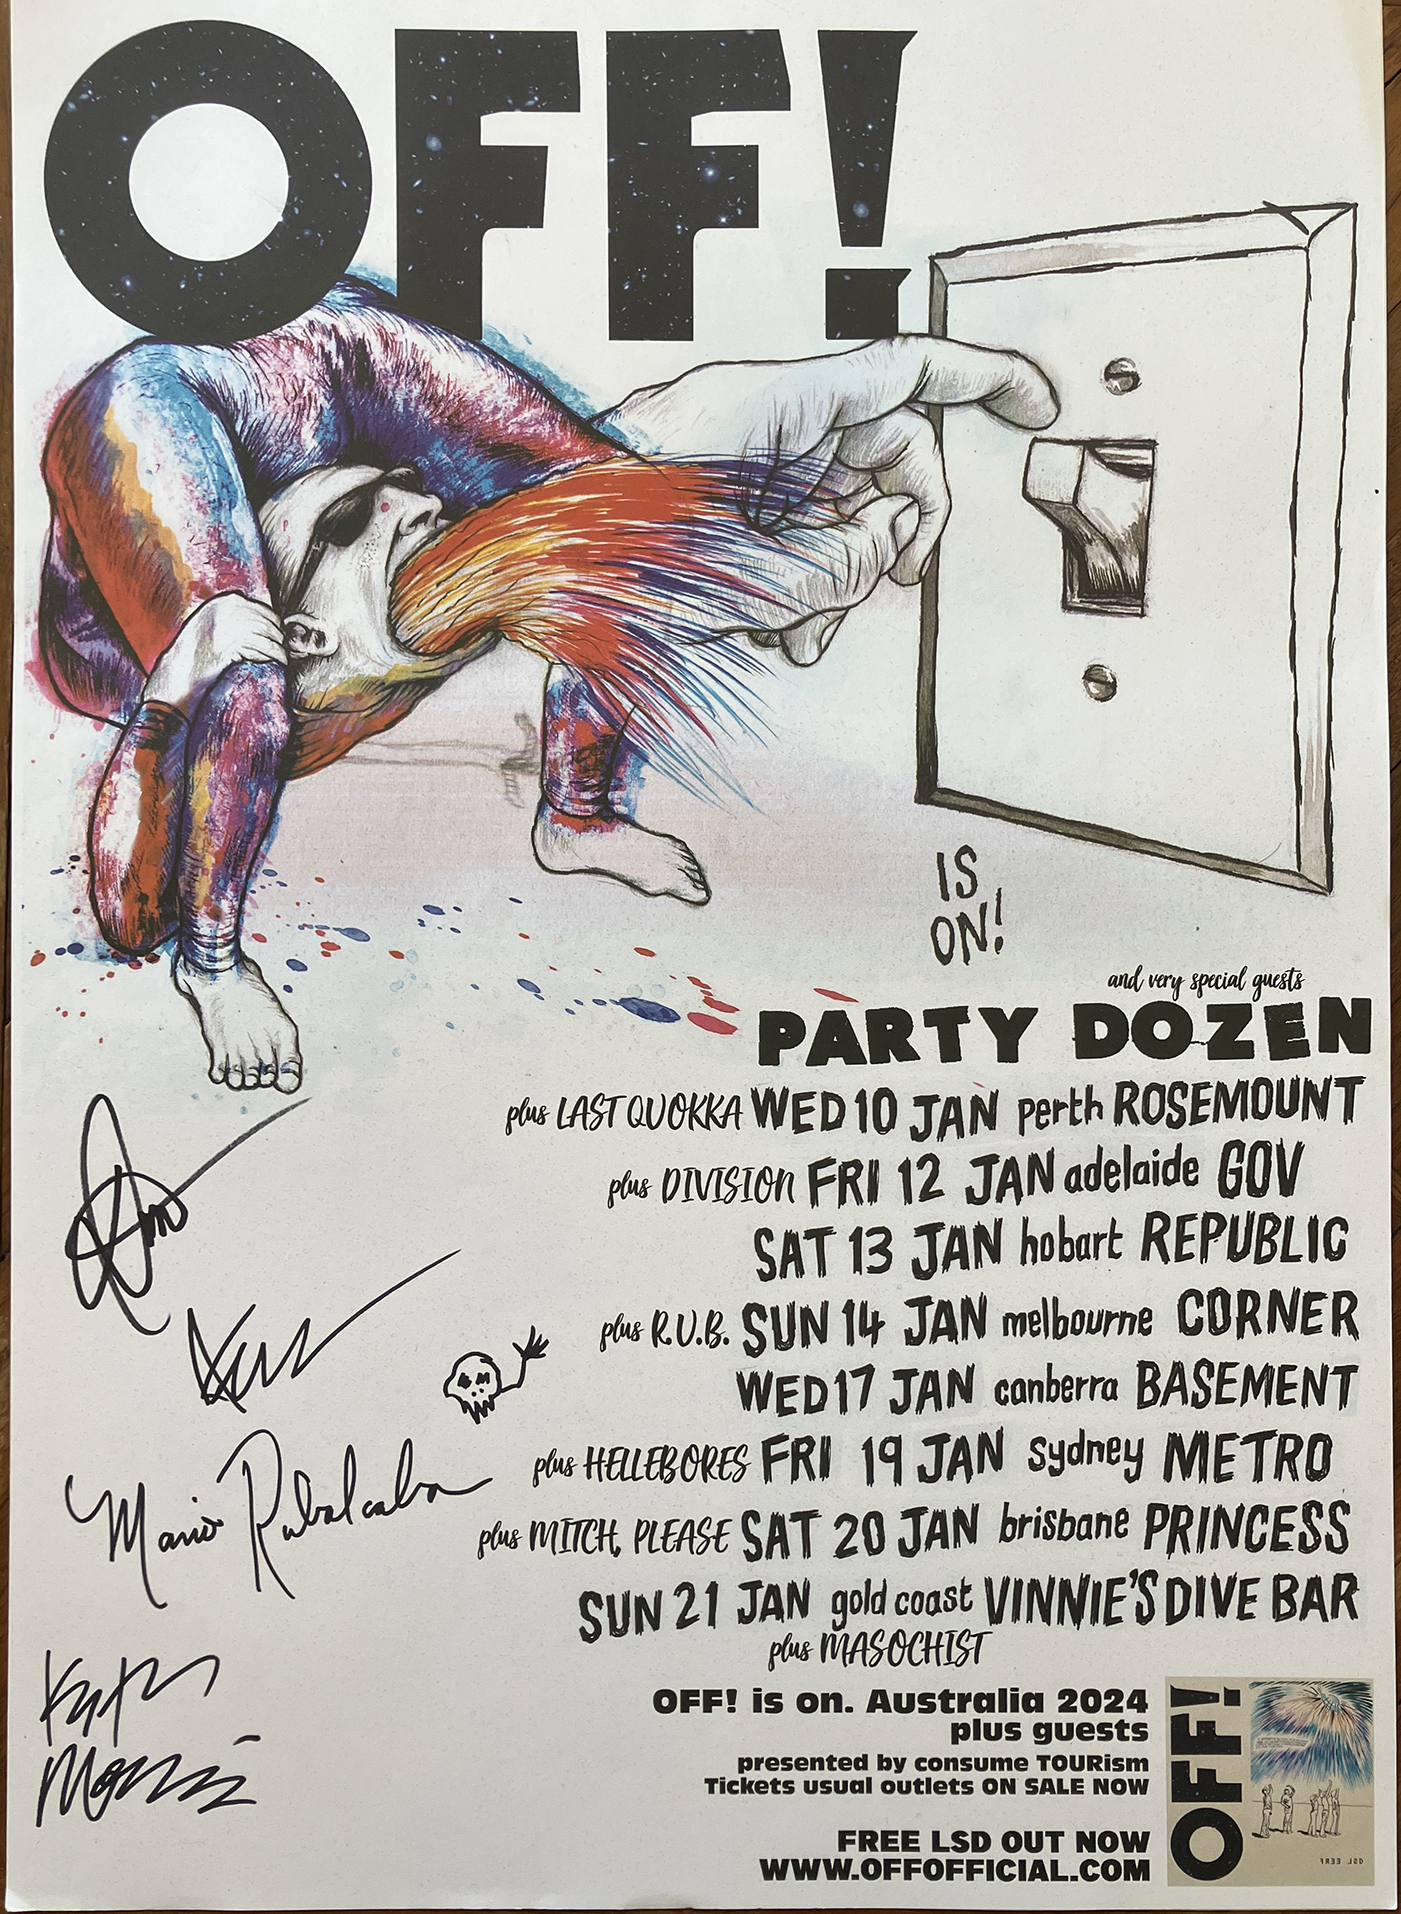 OFF!
IS
ON!
and very special guests
PARTY DOZEN
plus LAST QUOKKA WED 10 JAN perth ROSEMOUNT
plus DIVISION FRI 12 JAN adelaide GOV
SAT 13 JAN hobart REPUBLIC
plus R.U.B. SUN 14 JAN melbourne CORNER
WED 17 JAN canberra BASEMENT
plus HELLEBORES FRI 19 JAN sydney METRO
plus MITCH, PLEASE SAT 20 JAN brisbane PRINCESS
SUN 21 JAN gold coast VINNIE'S DIVE BAR
plus MASOCHIST
Mario Rubalcaba
Keith
Morris
OFF! is on. Australia 2024
plus guests
presented by consume TOURism
Tickets usual outlets ON SALE NOW
FREE LSD OUT NOW
WWW.OFFOFFICIAL.COM
OFF!
FREE LSD